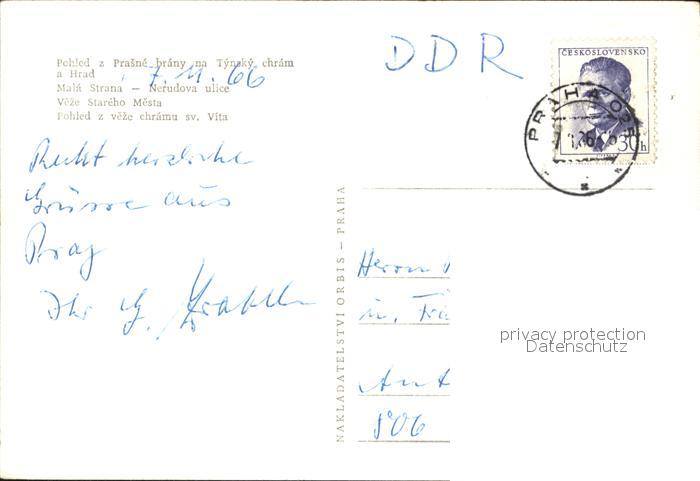 Pohled z Prašné brány na Týnský chrám
a Hrad
Malá Strana — Nerudova ulice
Věže Starého Města
Pohled z věže chrámu sv. Víta
7. 11. 66
Recht herzliche
Grüsse aus
Prag
Ihr G.
NAKLADATELSTVÍ ORBIS – PRAHA
DDR
ČESKOSLOVENSKO
30 h
PRAHA
Herrn
806
privacy protection
Datenschutz